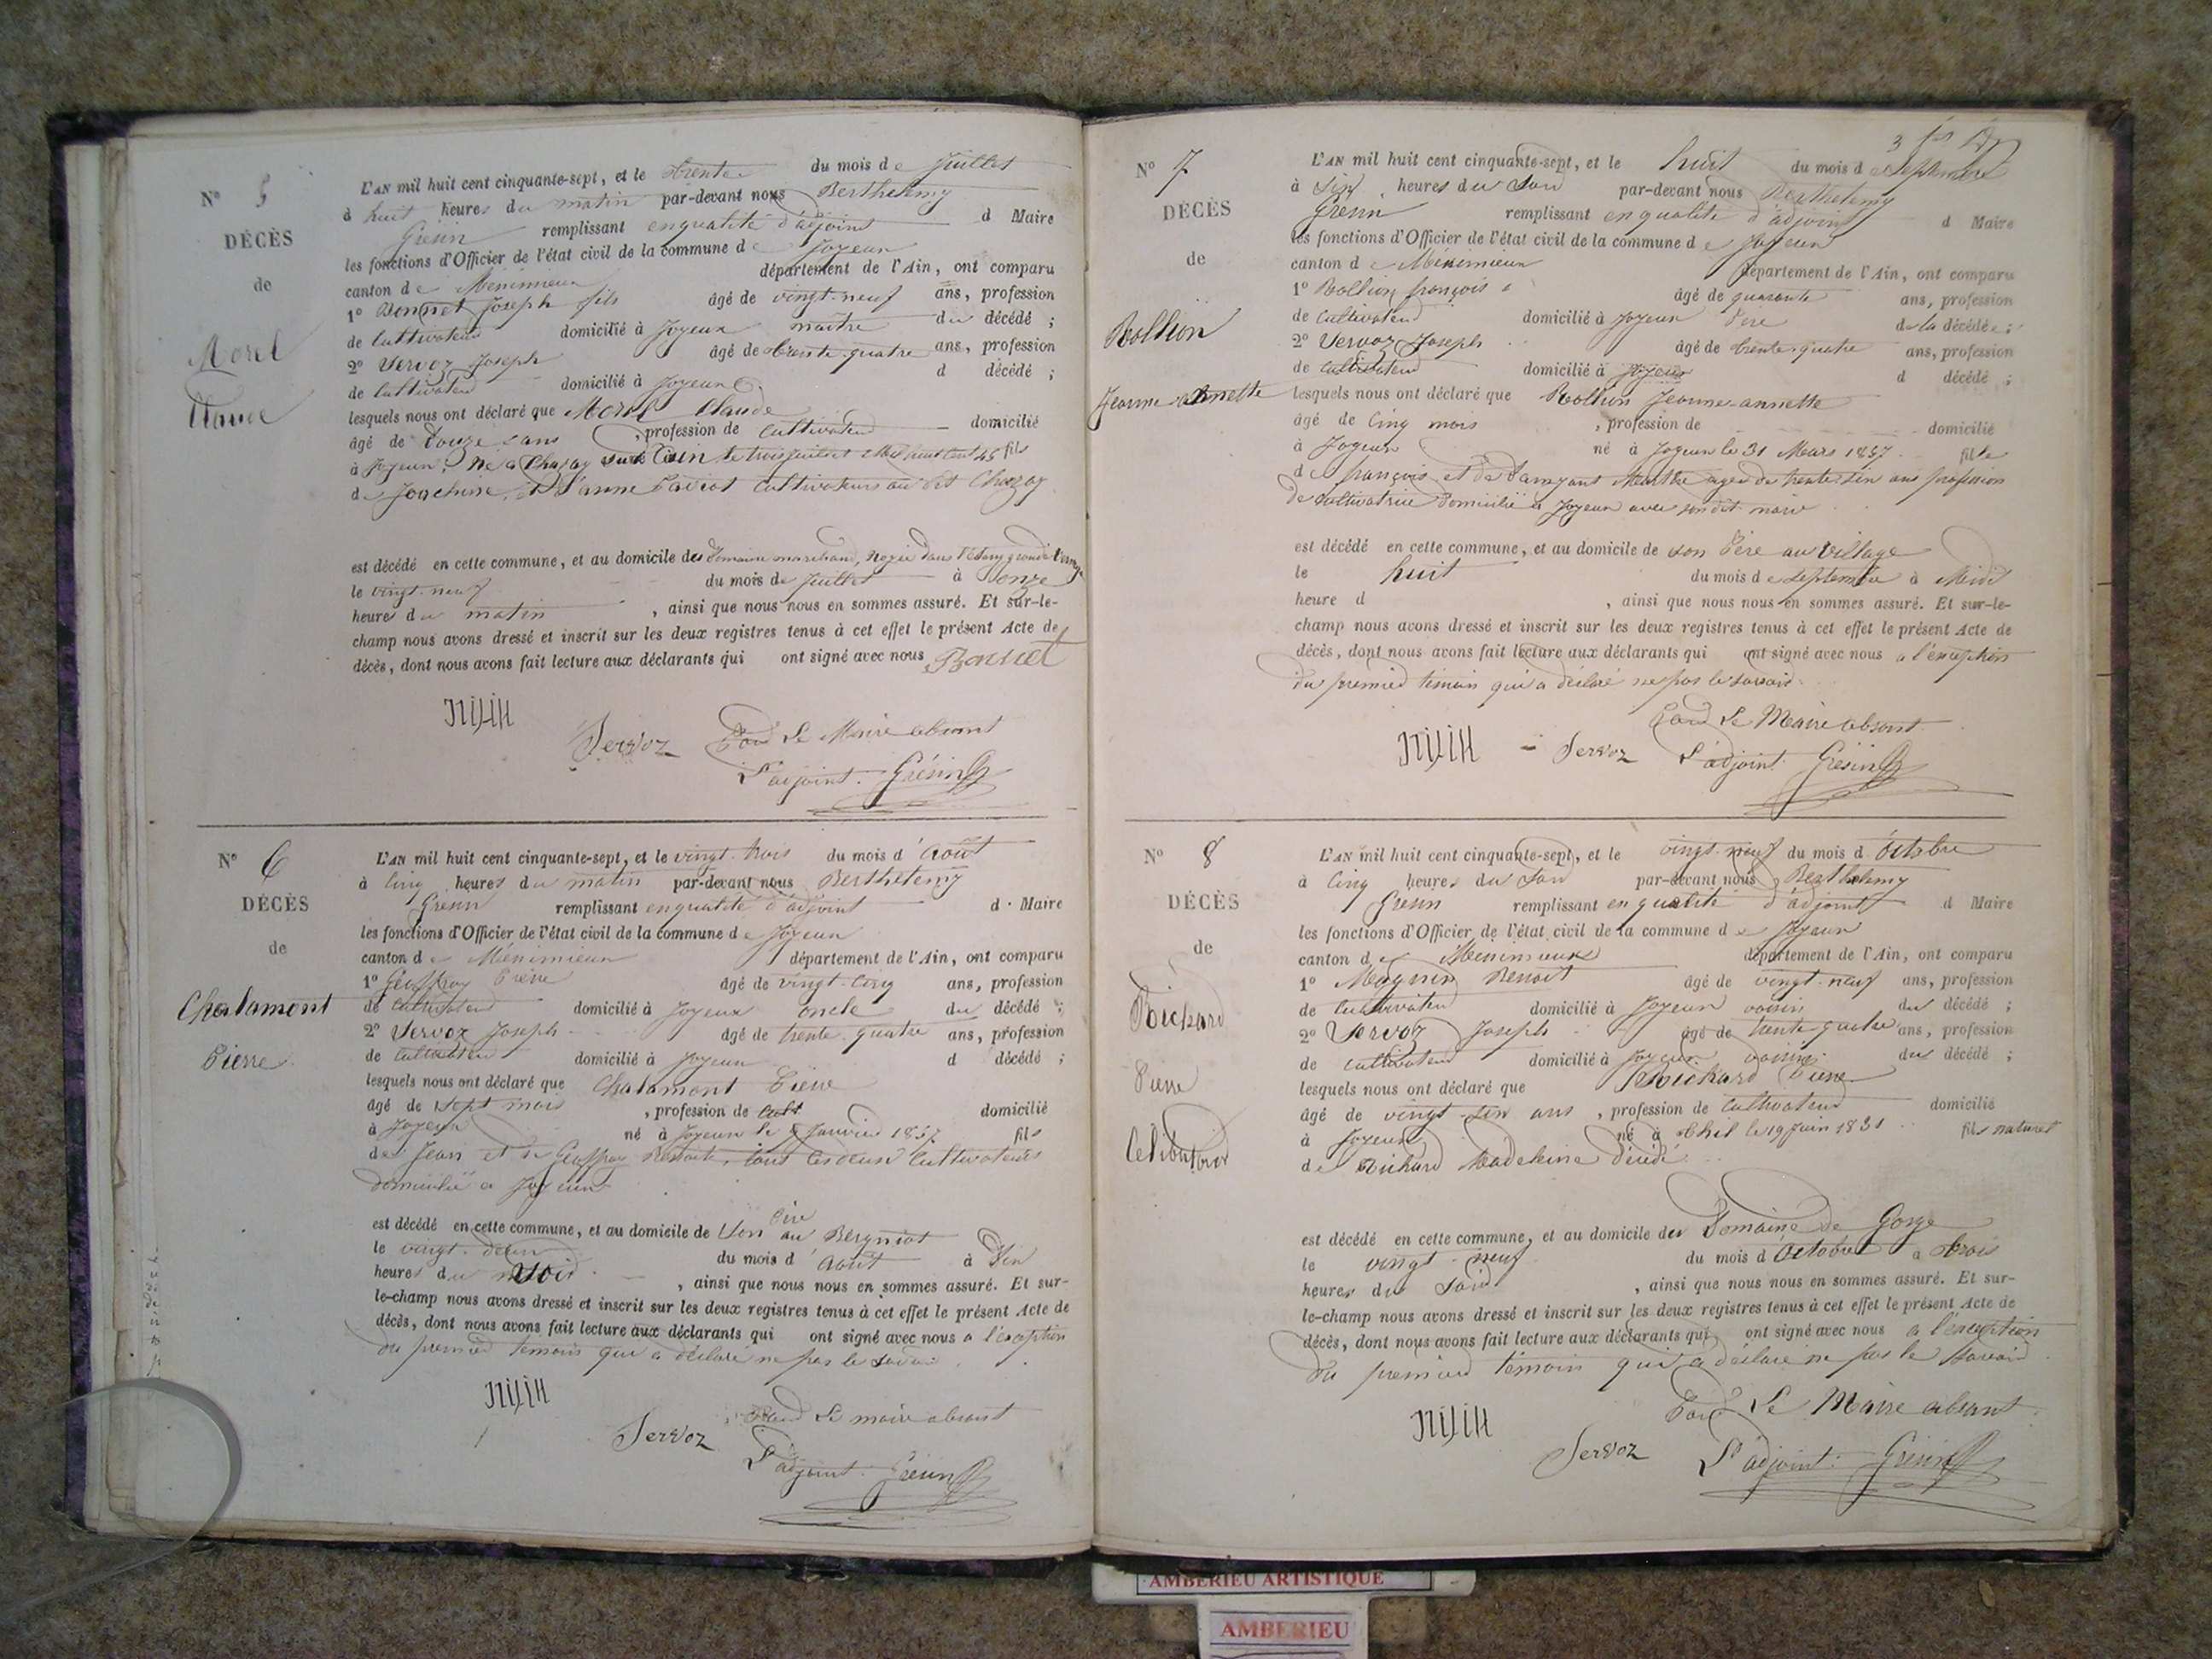 N° 5
DÉCÈS
de
Morel
Claude
L'AN mil huit cent cinquante-sept, et le trente du mois de Juillet
à huit heures du matin par-devant nous Berthelemy
Gresin remplissant en qualité d'adjoint d Maire
les fonctions d'Officier de l'état civil de la commune de Joyeux
canton de Meximieux département de l'Ain, ont comparu
1° Bonnet Joseph fils âgé de vingt-neuf ans, profession
de Cultivateur domicilié à Joyeux maître du décédé ;
2° Servoz Joseph âgé de trente-quatre ans, profession
de Cultivateur domicilié à Joyeux d décédé ;
lesquels nous ont déclaré que Morel Claude
âgé de Douze ans , profession de Cultivateur domicilié
à Joyeux, né à Chazay sur Ain le trois juillet mil huit cent 45 fils
de Joachim, et d'anne Cultivateurs au dit Chazay
est décédé en cette commune, et au domicile du Domaine marchand, Noyé dans l'Etang grande
le vingt-neuf du mois de Juillet à onze
heures du matin , ainsi que nous nous en sommes assuré. Et sur-le-
champ nous avons dressé et inscrit sur les deux registres tenus à cet effet le présent Acte de
décès, dont nous avons fait lecture aux déclarants qui ont signé avec nous Bonnet
Servoz Pour Le Maire absent
L'adjoint. Grésin
N° 6
DÉCÈS
de
Chalamont
Pierre
L'AN mil huit cent cinquante-sept, et le vingt-trois du mois d'Août
à cinq heures du matin par-devant nous Berthelemy
Gresin remplissant en qualité d'adjoint d Maire
les fonctions d'Officier de l'état civil de la commune de Joyeux
canton de Méximieux département de l'Ain, ont comparu
1° Geoffray Pierre âgé de vingt-cinq ans, profession
de Cultivateur domicilié à Joyeux oncle du décédé ;
2° Servoz Joseph âgé de trente-quatre ans, profession
de Cultivateur domicilié à Joyeux d décédé ;
lesquels nous ont déclaré que Chalamont Pierre
âgé de sept mois , profession de Cult domicilié
à Joyeux né à Joyeux le Janvier 1857 fils
de Jean et de Geoffray tous les deux Cultivateurs
domicilié à Joyeux
est décédé en cette commune, et au domicile de son Père au Bergniot
le vingt-deux du mois d'Août à Six
heures du soir , ainsi que nous nous en sommes assuré. Et sur-
le-champ nous avons dressé et inscrit sur les deux registres tenus à cet effet le présent Acte de
décès, dont nous avons fait lecture aux déclarants qui ont signé avec nous a l'exception
du premier témoin qui a déclaré ne pas le savoir.
Pour Le maire absent
Servoz
L'adjoint. Grésin
3
N° 7
DÉCÈS
de
Rollion
Jeanne-annette
L'AN mil huit cent cinquante-sept, et le huit du mois de Septembre
à Six heures du Soir par-devant nous Berthelemy
Gresin remplissant en qualité d'adjoint d Maire
les fonctions d'Officier de l'état civil de la commune de Joyeux
canton de Méximieux département de l'Ain, ont comparu
1° Rollion françois âgé de quarante ans, profession
de Cultivateur domicilié à Joyeux Père de la décédée ;
2° Servoz Joseph âgé de trente-quatre ans, profession
de Cultivateur domicilié à Joyeux d décédé ;
lesquels nous ont déclaré que Rollion Jeanne-annette
âgé de Cinq mois , profession de domicilié
à Joyeux né à Joyeux le 31 Mars 1857 fille
de françois et de Marthe agée de trente-six ans profession
de Cultivatrice Domicilié à Joyeux avec son dit mari
est décédé en cette commune, et au domicile de son Père au Village
le huit du mois de Septembre à Midi
heure d , ainsi que nous nous en sommes assuré. Et sur-le-
champ nous avons dressé et inscrit sur les deux registres tenus à cet effet le présent Acte de
décès, dont nous avons fait lecture aux déclarants qui ont signé avec nous a l'exception
du premier témoin qui a déclaré ne pas le savoir.
Pour Le Maire absent
Servoz L'adjoint. Grésin
N° 8
DÉCÈS
de
Richard
Pierre
Célibataire
L'AN mil huit cent cinquante-sept, et le vingt-neuf du mois d'Octobre
à Cinq heures du Soir par-devant nous Berthelemy
Gresin remplissant en qualité d'adjoint d Maire
les fonctions d'Officier de l'état civil de la commune de Joyeux
canton de Meximieux département de l'Ain, ont comparu
1° Magnin Benoit âgé de vingt-neuf ans, profession
de Cultivateur domicilié à Joyeux voisin du décédé ;
2° Servoz Joseph âgé de trente quatre ans, profession
de cultivateur domicilié à Joyeux voisin du décédé ;
lesquels nous ont déclaré que Richard Pierre
âgé de vingt-six ans , profession de Cultivateur domicilié
à Joyeux né à le 19 Juin 1831 fils naturel
de Richard Madeleine Décédé
est décédé en cette commune, et au domicile du Domaine de Gorge
le vingt-neuf du mois d'Octobre à trois
heures du Soir , ainsi que nous nous en sommes assuré. Et sur-
le-champ nous avons dressé et inscrit sur les deux registres tenus à cet effet le présent Acte de
décès, dont nous avons fait lecture aux déclarants qui ont signé avec nous a l'exception
du premier témoin qui a déclaré ne pas le savoir
Pour Le Maire absent
Servoz L'adjoint. Grésin
AMBERIEU ARTISTIQUE
AMBERIEU